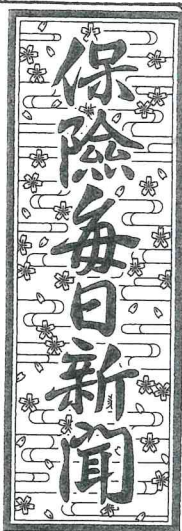 保険毎日新聞